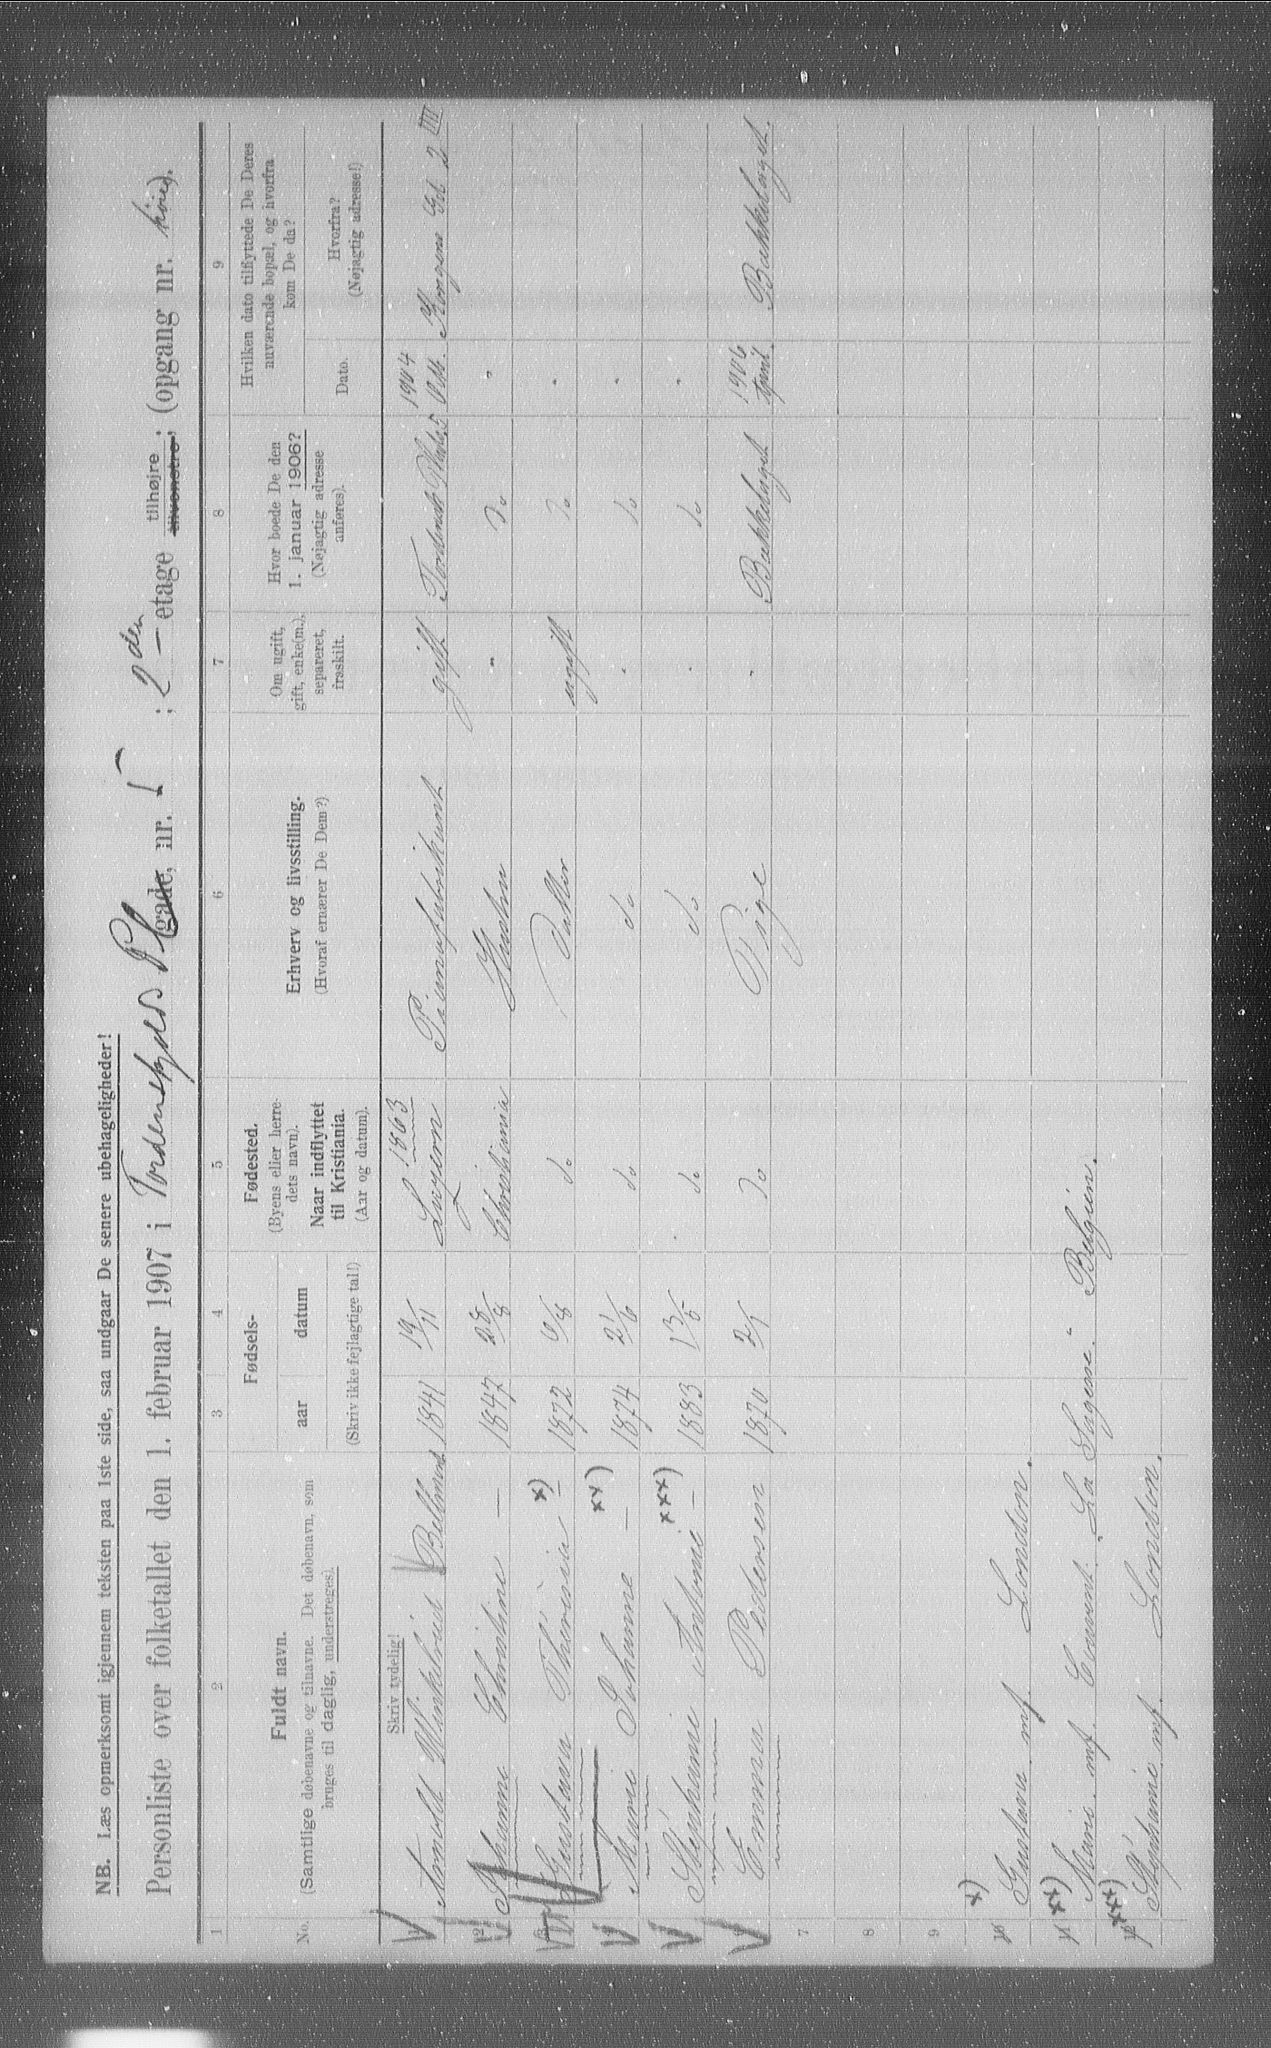 NB. Læs opmerksomt igjennem teksten paa 1ste side, saa undgaar De senere ubehageligheder!
Personliste over folketallet den 1. februar 1907 i Tordenskjolds Pl gade, nr. 5 ; 2den – etage tilhøjre tilvenstre; (opgang nr. høire).
1 2 3 4 5 6 7 8 9
No.
Fuldt navn.
(Samtlige døbenavne og tilnavne. Det døbenavn, som
bruges til daglig, understreges).
Skriv tydelig!
Fødsels-
aar datum
(Skriv ikke fejlagtige tal!)
Fødested.
(Byens eller herre-
dets navn).
Naar indflyttet
til Kristiania.
(Aar og datum).
Erhverv og livsstilling.
(Hvoraf ernærer De Dem?)
Om ugift,
gift, enke(m.),
separeret,
fraskilt.
Hvor boede De den
1. januar 1906?
(Nøjagtig adresse
anføres).
Hvilken dato tilflyttede De Deres
nuværende bopæl, og hvorfra
kom De da?
Dato.
Hvorfra?
(Nøjagtig adresse!)
1 Arnold Winkelried 1841 19/11 Luzern 1863 Pianofabrikant gift Tordensk Plads 5 1904 Okt. Kongens Gd 2 III
2 Johanne Christine — 1847 28/8 Christiania Hustru " Do "
3 Gustava Thérésia x) — 1872 6/8 do Datter ugift Do "
Marie Johanne xx) — 1874 21/6 do do " do "
Stéphanie Antonie xxx) — 1883 13/5 do do " do "
Emma Pedersen 1870 2/1 Do Pige " Bækkelaget 1906 April. Bækkelaget.
7
8
9
10 x) Gustava mf London.
11 xx) Marie. mf. Couvent. "La Sagesse." Belgien.
12 xxx) Stéphanie mf. London.